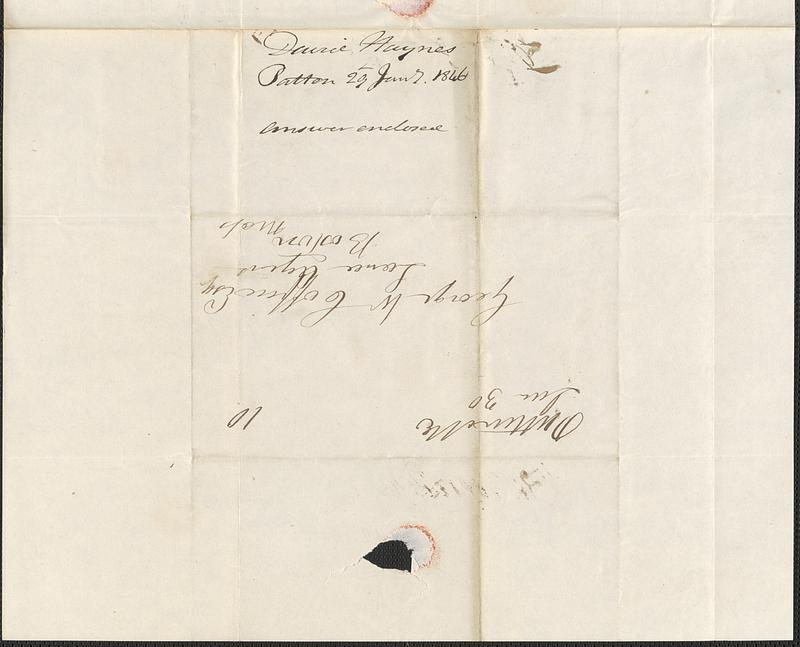 Daniel Haynes
Patton 29 Jany. 1846
answer enclosed
Jan 30
10
George W Coffin Esq
Land Agent
Boston
Mass